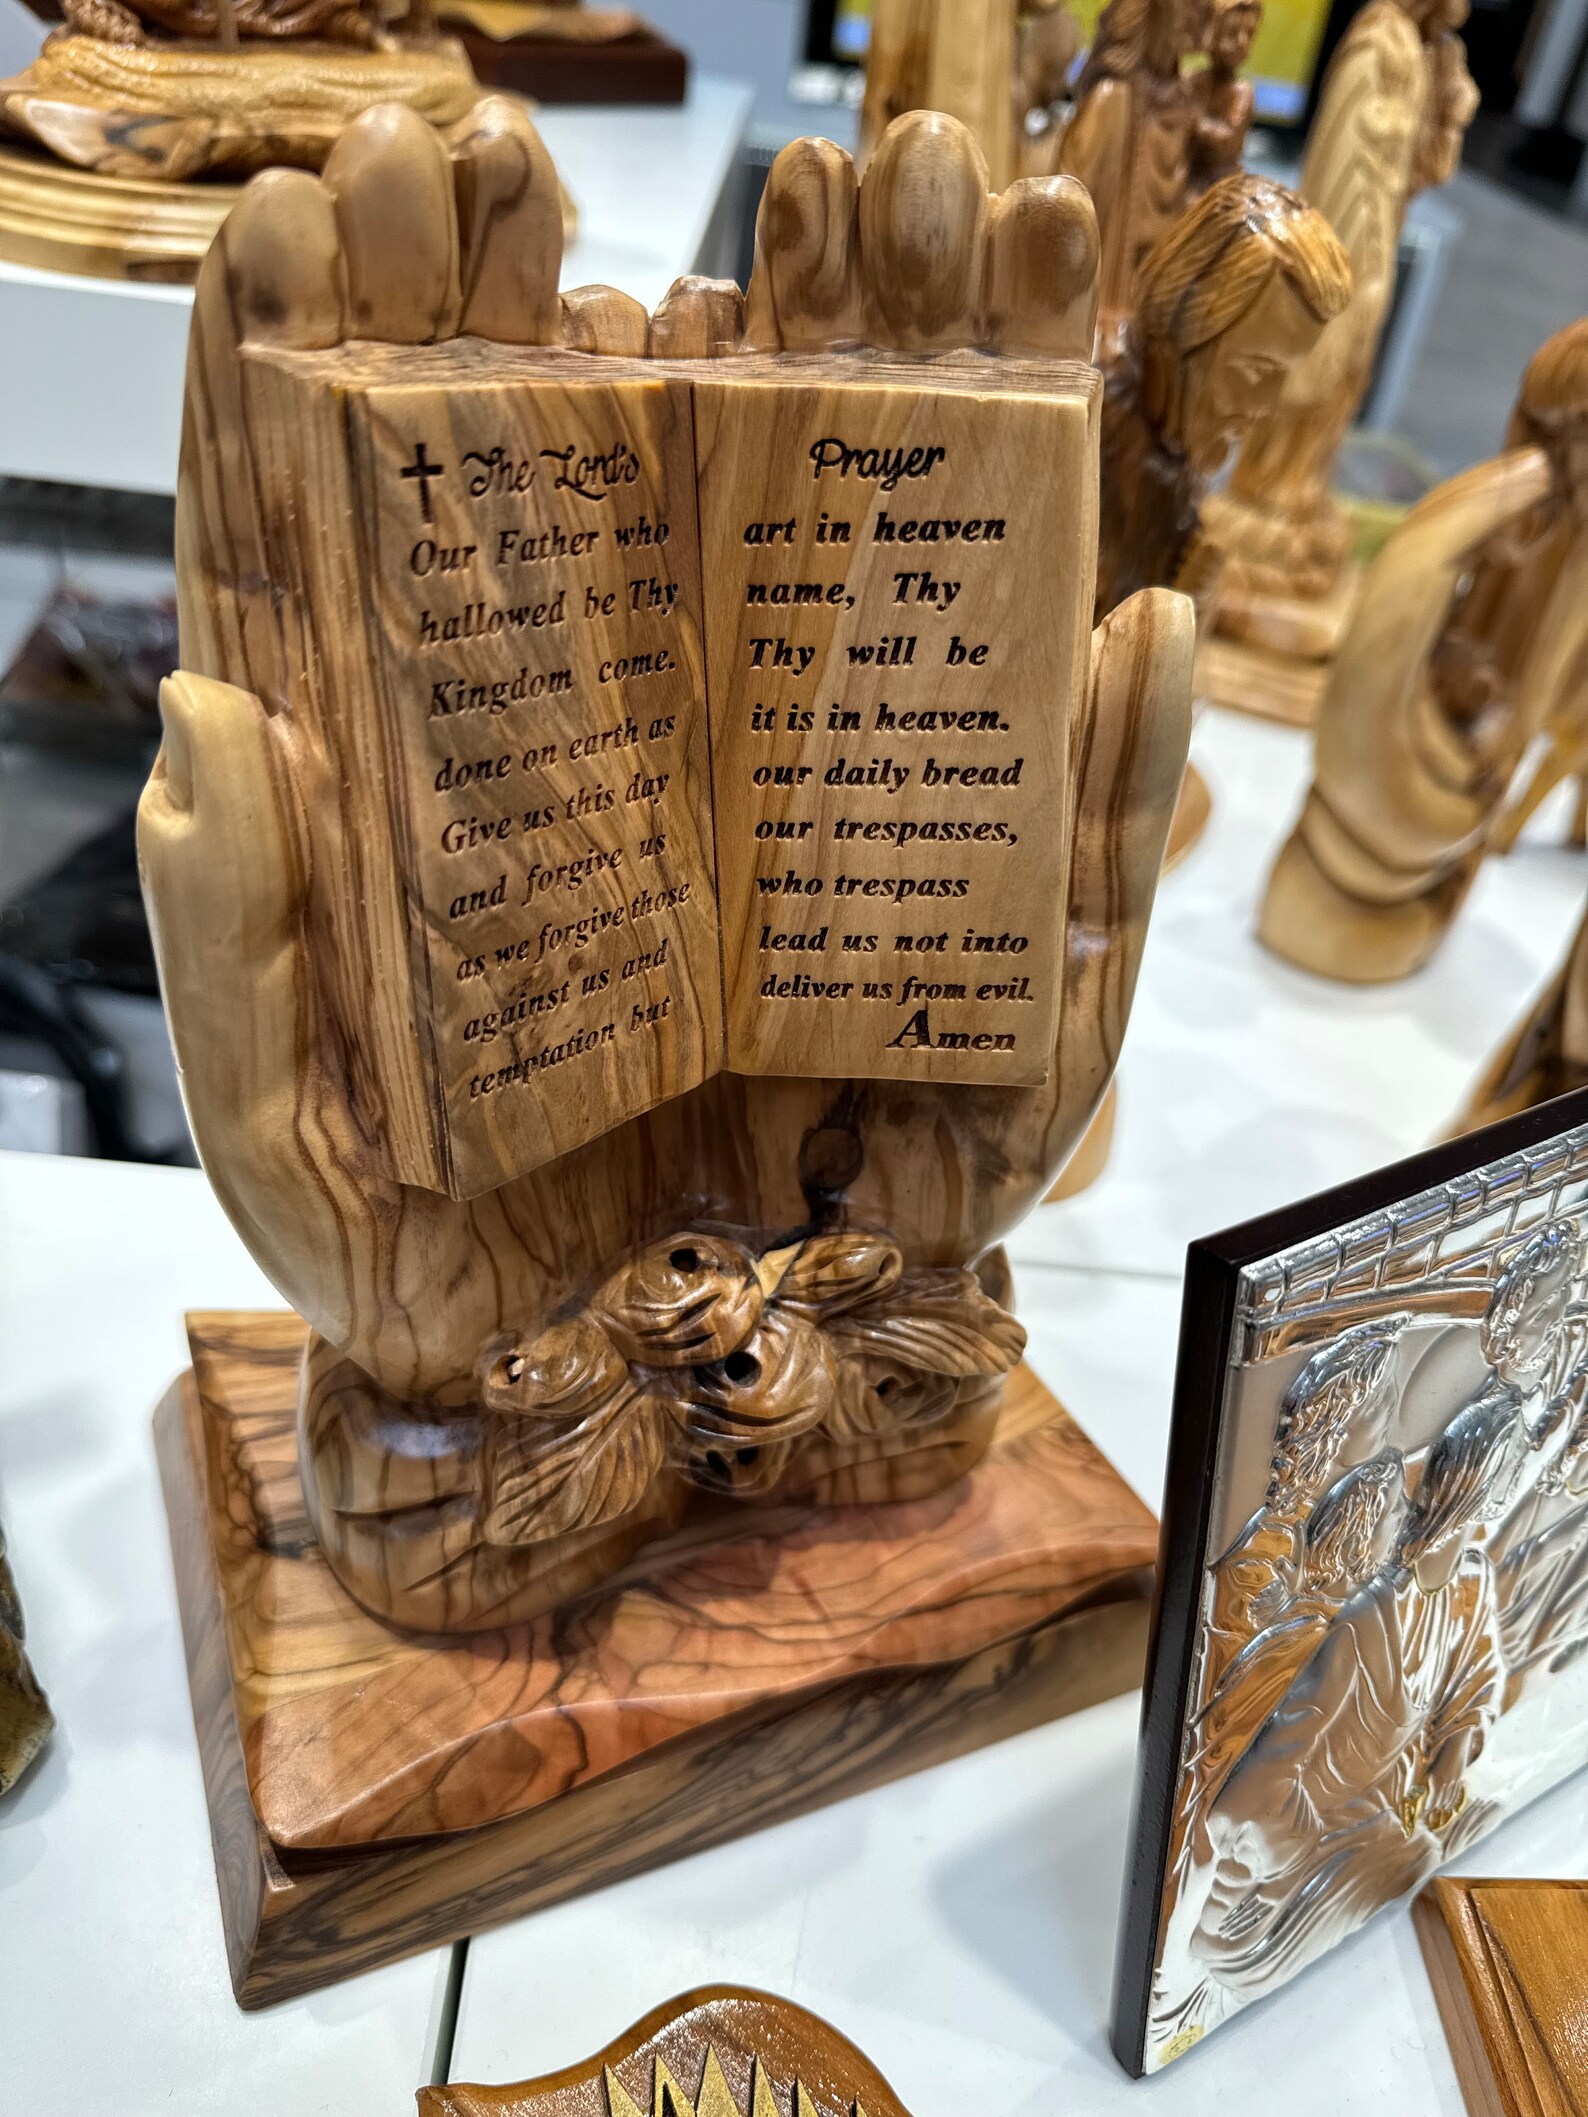 The Lord's Prayer
Our Father who art in heaven
hallowed be Thy name, Thy
Kingdom come. Thy will be
done on earth as it is in heaven.
Give us this day our daily bread
and forgive us our trespasses,
as we forgive those who trespass
against us and lead us not into
temptation but deliver us from evil.
Amen